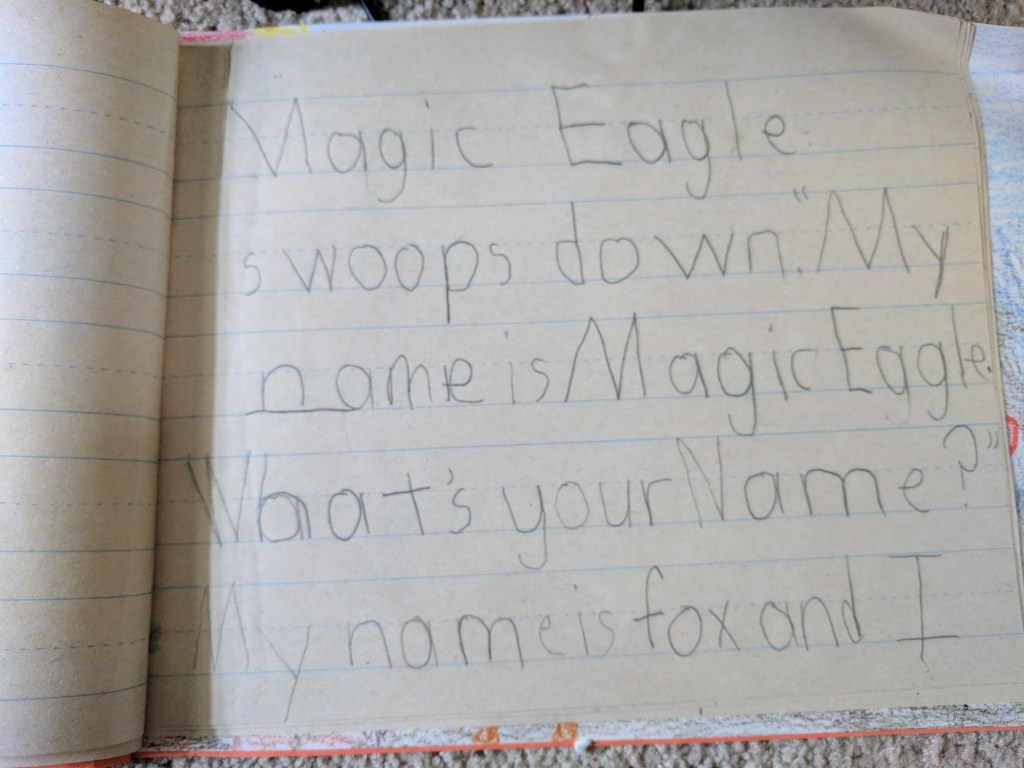 Magic Eagle
swoops down. "My
name is Magic Eagle.
What's your Name?"
My name is fox and I